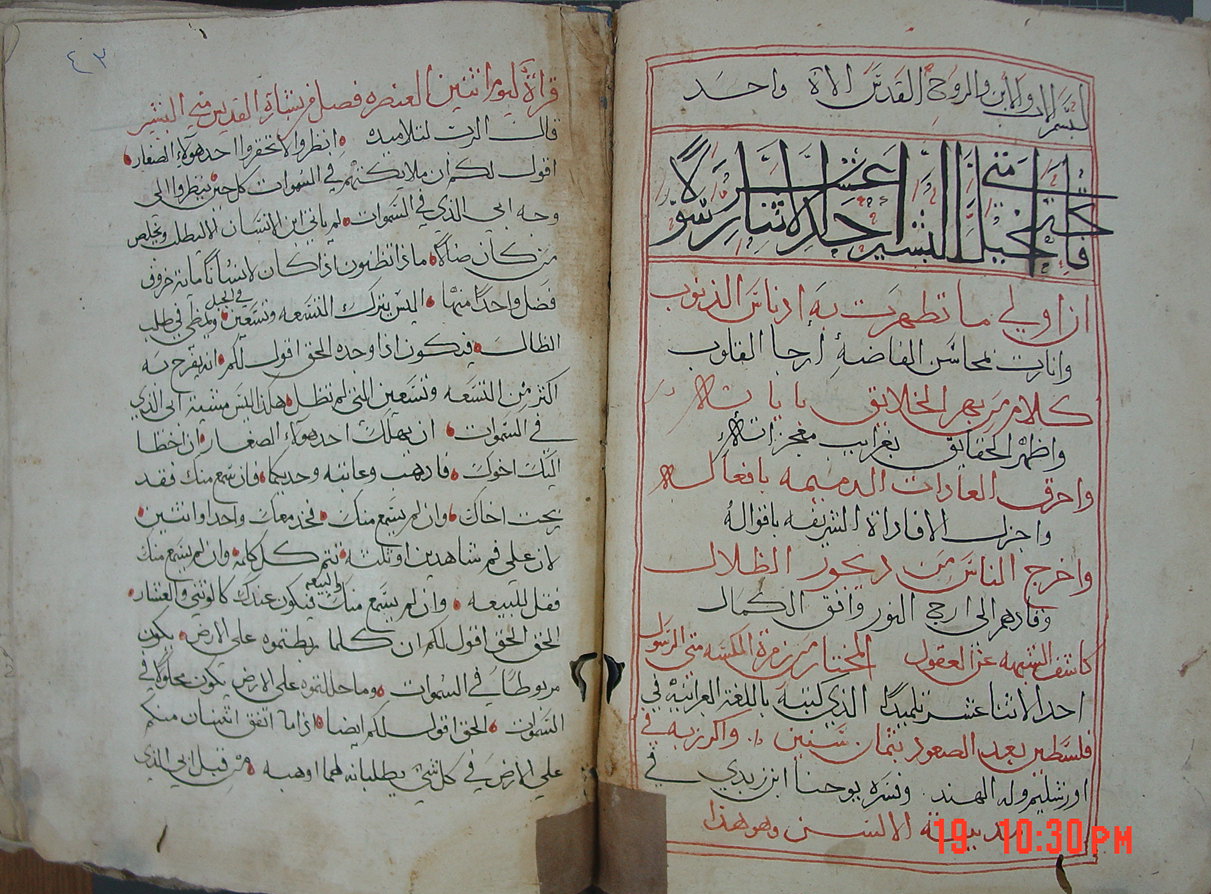 بسم الاب والابن والروح القدس الاة واحد
فاتحة انجيل متى البشير احد الاثنا عشر رسولا
ان اولي ما تطهرت به ادناس الذنوب
وانارت بمحاسن الفاضه ارجا القلوب
كلام من بهر الخلائق باياته
واظهر الحقايق بغرايب معجزاته
واحرق العادات الدميمه بافعاله
واجزل الافاداة الشريفه باقواله
واخرج الناس من ديجور الظلال
وقادهم الى ارج النور وافق الكمال
كاشف الشبهه عن العقول المختار من زمرة متى الرسول
احد الاثنا عشر تلميدًا الذي كتبه باللغة العبرانية في
فلسطين بعد الصعود بثمان سنين واكرز به في
اورشليم والهند وفسره يوحنا ابن زبدي في
مدينة وهو هذا
19 10:30 PM
٤٣
قراة ليوم اثنين العنصره فصل من بشارة القديس متى البشير
قال الرب لتلاميده انظروا لا تحقروا احد هولاء الصغار
اقول لكم ان ملايكتهم في السموات كل حين ينظروا الى
وجه ابي الذي في السموات لم ياتي ابن الانسان الا ليطلب ويخلص
من كان ضالا ماذا تظنون اذا كان لانسانًا ماية خروف
فضل واحدًا منها اليس يترك التسعه وتسعين في الجبل ويمضي في طلب
الظال فيكون اذا وجده الحق اقول لكم انه يفرح به
اكثر من التسعه وتسعين التي لم تظل هكذا ليس مشية ابي الذي
في السموات ان يهلك احد هولاء الصغار وان اخطا
اليك اخوك فادهب وعاتبه وحديكما فان سمع منك فقد
ربحت اخاك وان لم يسمع منك فخد معك واحدا واثنين
لان على فم شاهدين او ثلثة تتم كل كلمه وان لم يسمع منك
فقل للبيعه وان لم يسمع منك والبيعه فيكون عندك كالوثني والعشار
الحق الحق اقول لكم ان كلما ربطتموه على الارض يكون
مربوطًا في السموات وما حللتموه على الارض يكون محلولًا في
السموات الحق اقول لكم ايضا اذا ما اتفق اثنان منكم
على الارض في كل شي يطلبانه لهما اوهبه من قبل ابي الذي